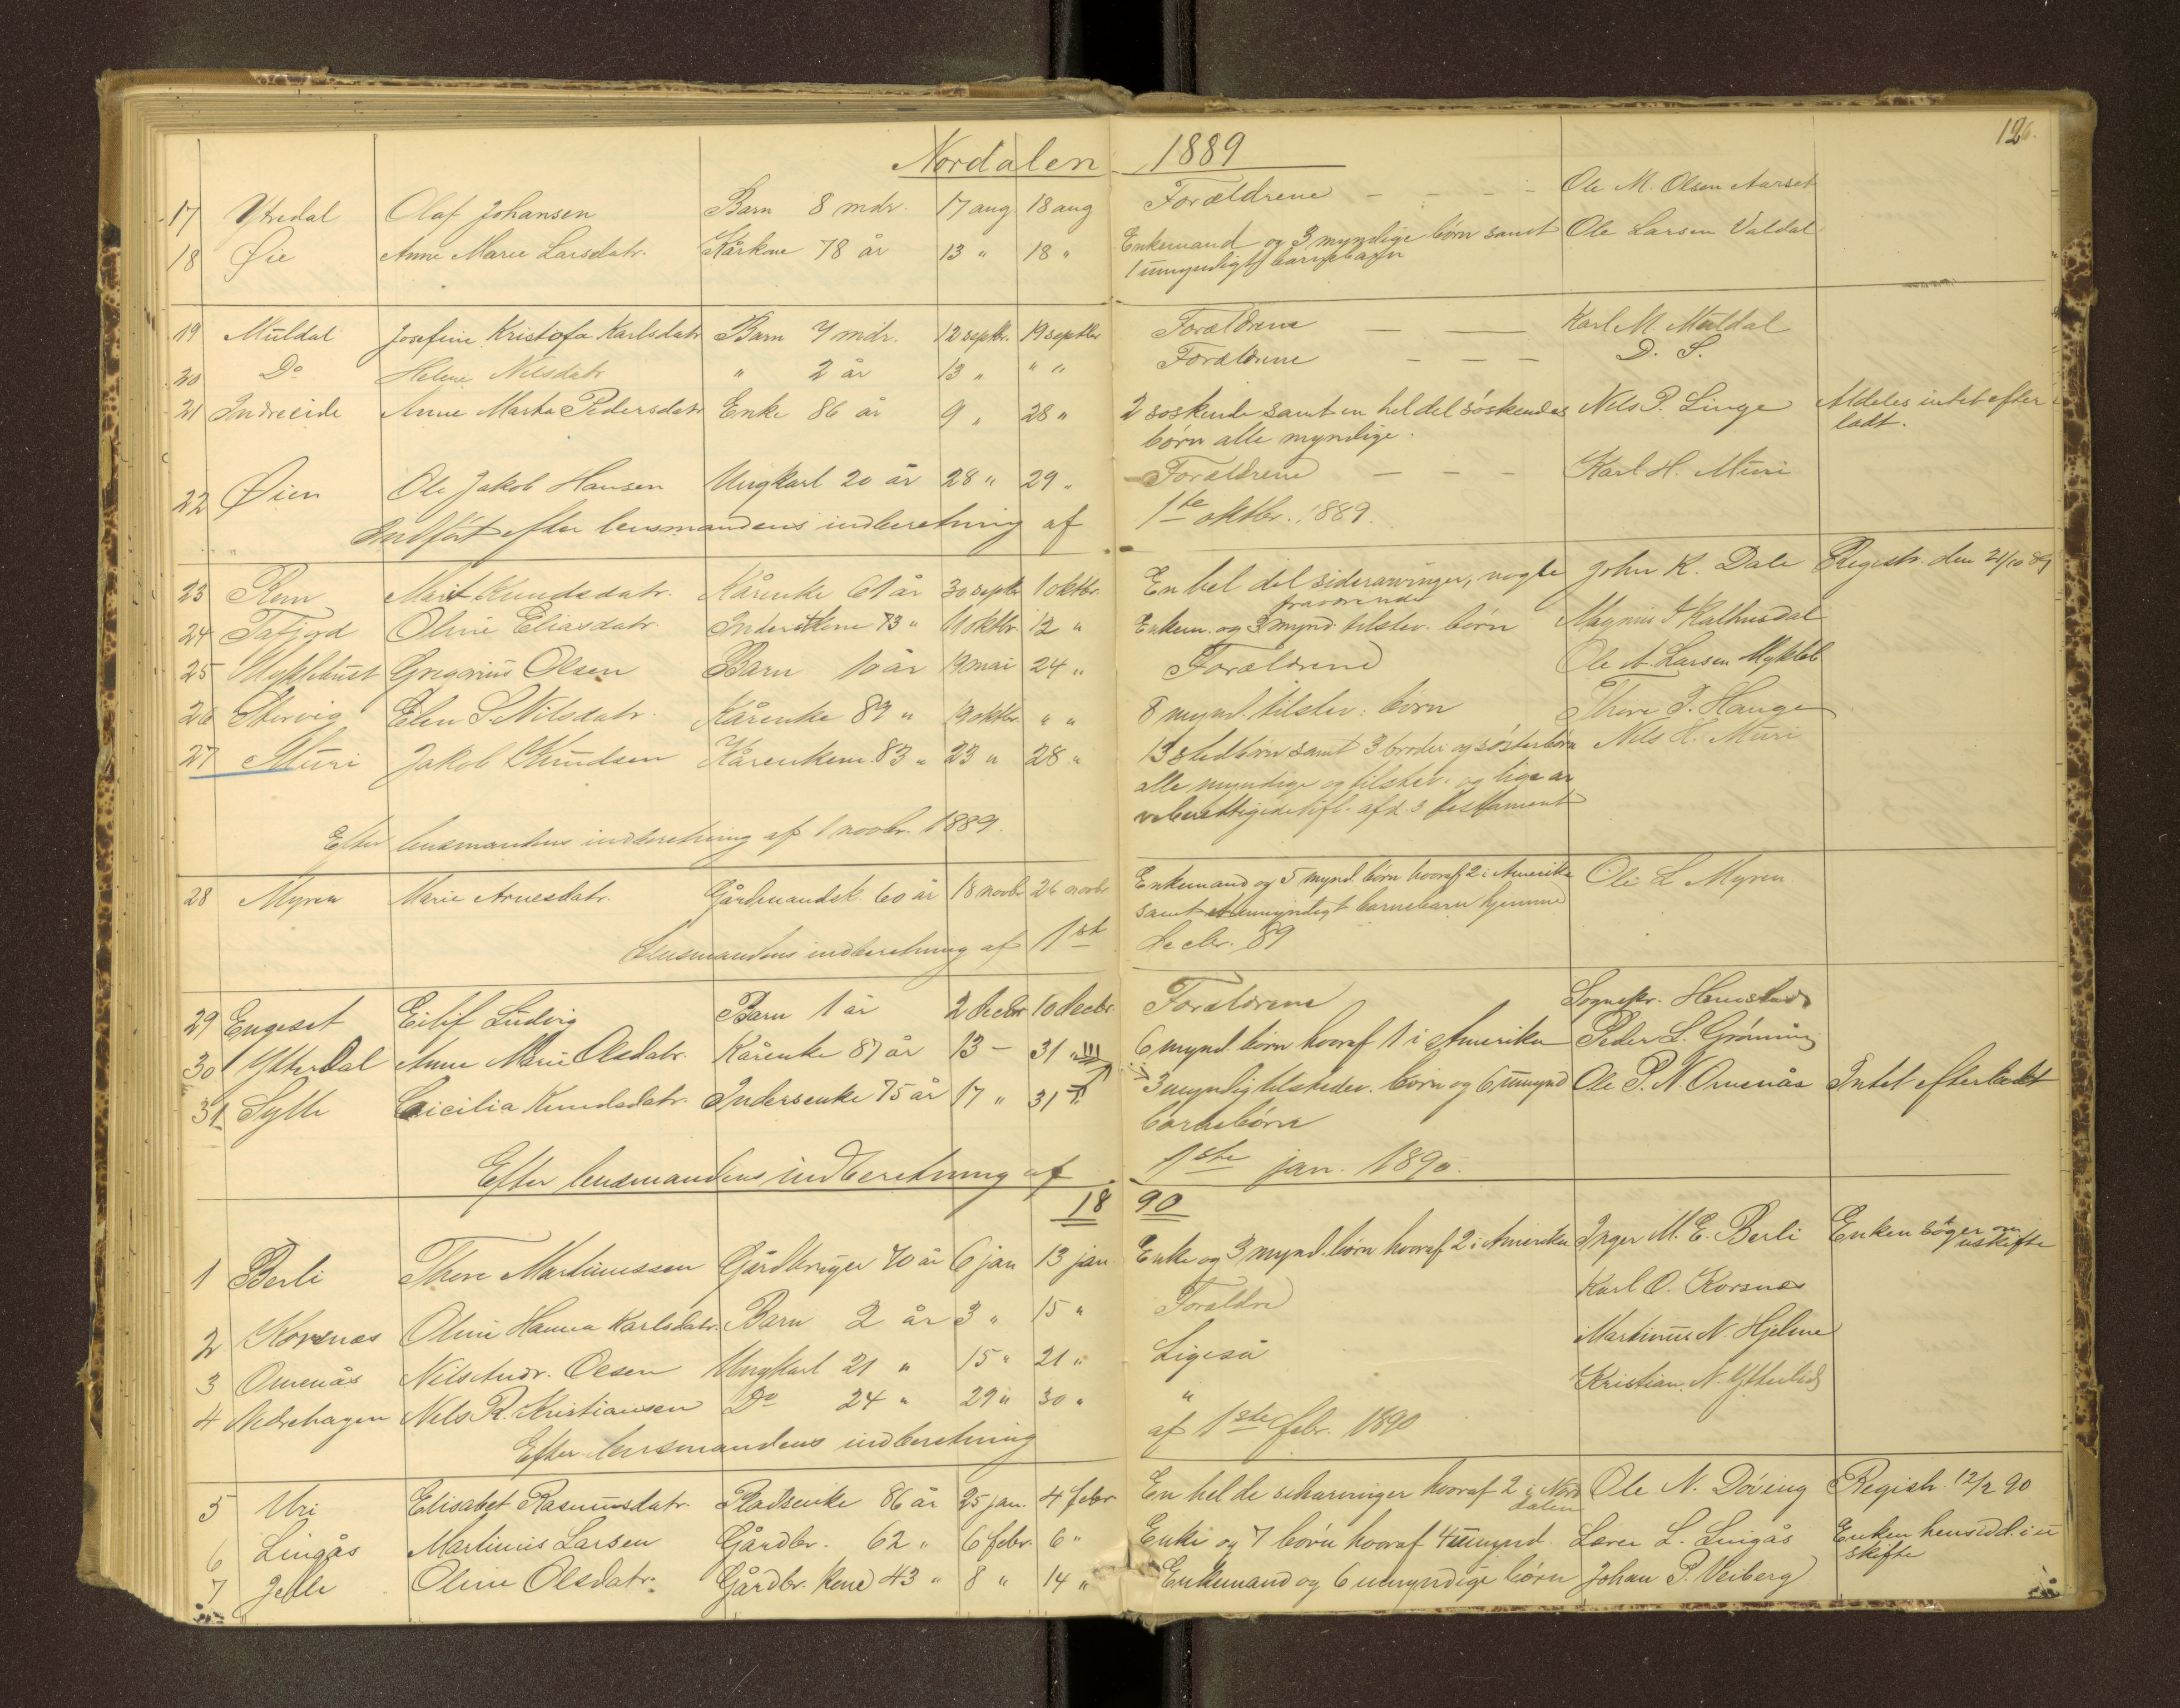 Nordalen 1889
126.
17 Ytredal Olaf Johansen Barn 8 mdr. 17 aug 18 aug Forældrene — - - - Ole M. Olsen Aarset
18 Øie Anne Marie Larsdatr. Kårkone 78 år 13 " 18 " Enkemand og 3 myndige børn samt Ole Larsen Valdal
1 umyndigt barnebarn
19 Muldal Josefine Kristofa Karlsdatr Barn 7 mdr. 12 septbr. 19 septbr Forældrene — — Karl M. Muldal
20 Do Helene Nilsdatr " 2 år 13 " " " Forældrene — — — D. S.
21 Indreeide Anne Marta Pedersdatr Enke 86 år 9 " 28 " 2 søskende samt en hel del søskendes Nils P. Linge Aldeles intet efter
børn alle myndige. ladt.
22 Øien Ole Jakob Hansen Ungkarl 20 år 28 " 29 " Forældrene — — — Karl H. Muri
Indført efter lensmandens indberetning af 1ste oktbr. 1889.
23 Rem Marit Knudsdatr. Kårenke 61 år 30 septbr 1 oktbr. En hel del sidearvinger, nogle John K. Dale Registr. den 21/10 89
fraværende
24 Tafjord Oline Eliasdatr. Inderstkone 73 " 11 oktbr. 12 " Enkem. og 3 mynd. tilstev. børn Magnus I Kalhusdal
25 Myklebust Gregorius Olsen Barn 10 år 19 mai 24 " Forældrene Ole A. Larsen Mykleb.
26 Storvig Elen S. Nilsdatr. Kårenke 89 " 19 oktbr " " 8 mynd. tilstev. børn Thore P. Hauge
27 Muri Jakob Knudsen Kårenkem. 83 " 23 " 28 " 13 stedbørn samt 3 broder og søsterbørn Nils H. Muri
alle myndige og tilstev. og lige ar
veberettigede tifl. afd. s testament
Efter lensmandens indberetning af 1 novbr. 1889.
28 Myren Marie Arnesdatr. Gårdmandsk. 60 år 18 novbr 26 novbr Enkemand og 5 mynd. børn hvoraf 2 i Amerika Ole L Myren
samt et umyndigt barnebarn hjemme
Lensmandens indberetning af 1st decbr. 89
29 Engeset Eilif Ludvig Barn 1 år 2 decbr 10 decbr. Forældrene Sognepr. Hemstad
30 Ytterdal Anne Marie Olsdatr. Kårenke 87 år 13 — 31 " 6 mynd. børn hvoraf 1 i Amerika Peder L. Grønning
31 Sylte Cicilia Knudsdatr. Indersenke 75 år 17 " 31 " 3 myndig tilsteder. børn og 6 umynd Ole P. N. Omenås Intet efterladt
børnebørn
Efter lensmandens indberetning af 1ste jan. 1890.
18 90
1 Berli Thore Martinussen Gårdbruger 70 år 6 jan 13 jan Enke og 3 mynd. børn hvoraf 2 i Amerika Inger M. E. Berli Enken søger om
uskifte
2 Korsnæs Oline Hanna Karlsdatr. Barn 2 år 3 " 15 " Forældre Karl O. Korsnæs
3 Omenås Nils Andr. Olsen Ungkarl 21 " 15 " 21 " Ligeså Martinus N. Hjelme
4 Nedrehagen Nils R. Kristiansen Do 24 " 29 " 30 " " Kristian N. Ytterlid
Efter lensmandens indberetning af 1ste febr. 1890
5 Uri Elisabet Rasmusdatr. Pladsenke 86 år 25 jan. 4 febr En hel de sidearvinger hvoraf 2 i Nord Ole N. Døving Registr. 12/2 90
dalen
6 Lingås Martinus Larsen Gårdbr. 62 " 6 febr. 6 " Enke og 7 børn hvoraf 4 umynd. Laree L. Lingås Enken hensidd. i u
skifte
7 Jelle Oline Olsdatr. Gårdbr. kone 43 " 8 " 14 " Enkemand og 6 umyndige børn Johan P. Veiberg